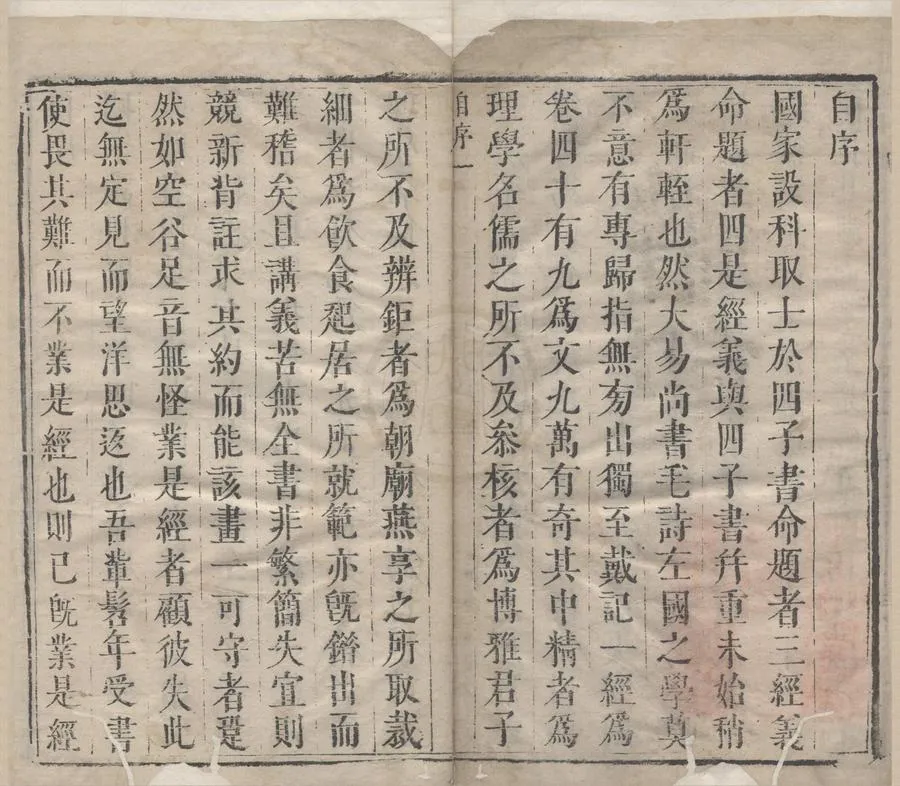 自序
國家設科取士於四子書命題者三經義
命題者四是經義與四子書幷重未始稍
爲軒輊也然大易尚書毛詩左國之學莫
不意有專歸指無匇出獨至戴記一經爲
卷四十有九爲文九萬有奇其中精者爲
理學名儒之所不及叅核者爲博雅君子
自序 一
之所不及辨鉅者爲朝廟燕享之所取裁
細者爲飮食起居之所就範亦旣錯出而
難稽矣且講義苦無全書非繁簡失宜則
競新背註求其約而能該畫一可守者蹔
然如空谷足音無怪業是經者顧彼失此
迄無定見而望洋思返也吾軰髫年受書
使畏其難而不業是經也則已旣業是經